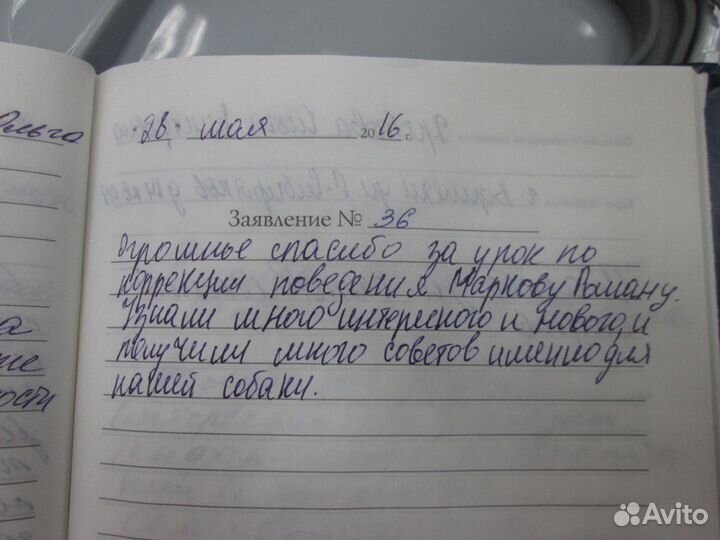 Ольга
"28" мая 2016 г.
Заявление № 36
Огромное спасибо за урок по
коррекции поведения Маркову Роману.
Узнали много интересного и нового, и
получили много советов именно для
нашей собаки.
а
ие
ости
Avito